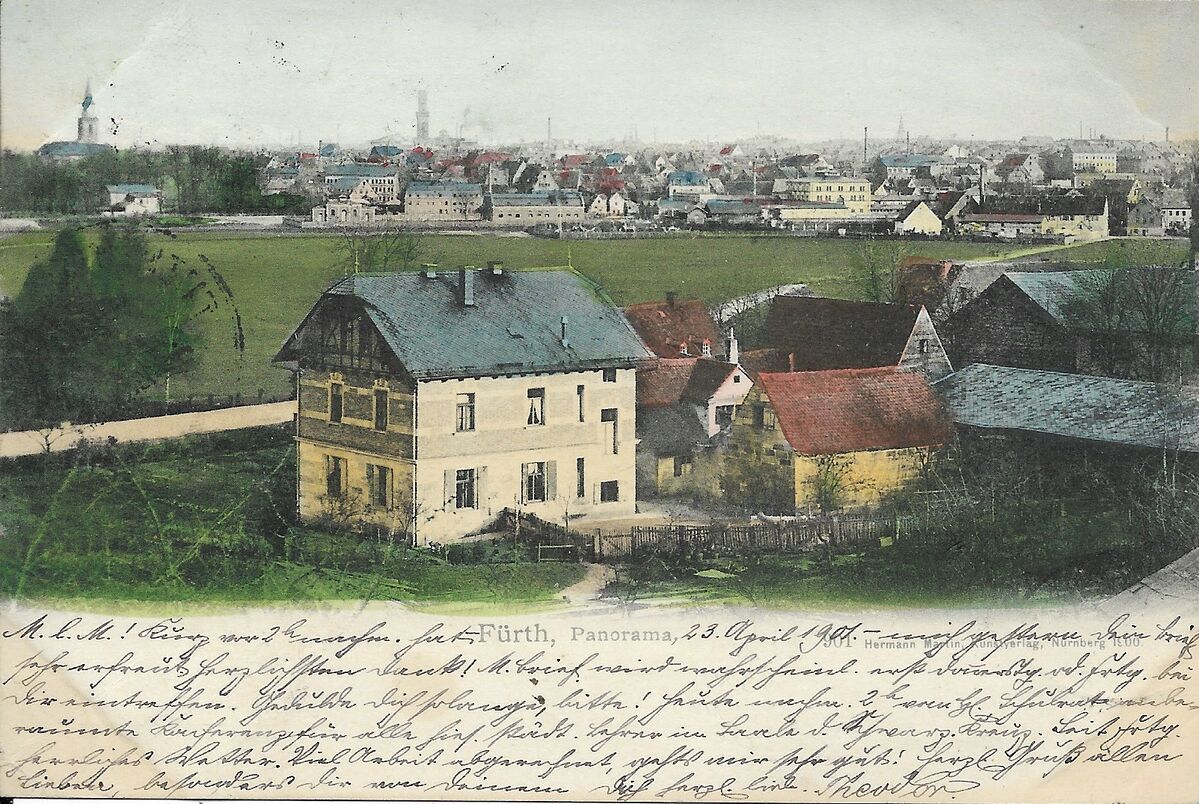 M. l. M.! Kurz vor 2 h nachm. hat Fürth, Panorama, 23. April 1901. – mich gestern Dein Brief
901 Hermann Martin, Kunstverlag, Nürnberg 1900.
sehr erfreut herzlichsten Dank! M. Brief wird wahrscheinl. erst donerstg. od. frtg. bei
Dir eintreffen. Gedulde Dich solange, bitte! Heute nachm. 2 h vom H. Schulrat anbe
raumte Konferenz für alle hies. städt. Lehrer im Saale d. Schwarz. Kreuz. Seit frtg.
herrliches Wetter. Viel Arbeit abgerechnet, gehts mir sehr gut! Herzl. Gruß allen
Lieben, besonders Dir von Deinem Dich herzl. lieb. Theodor